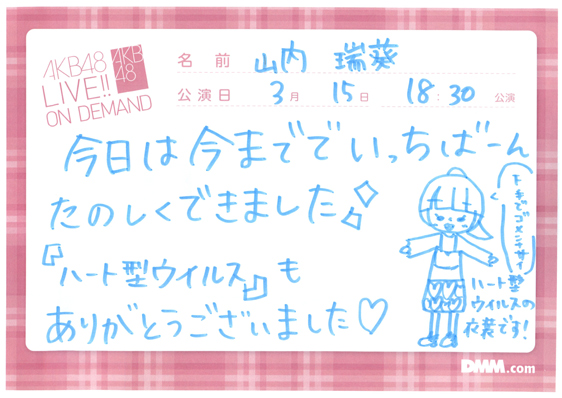 AKB48
LIVE!!
ON DEMAND
AKB
48
名前 山内 瑞葵
公演日 3月 15日 18:30 公演
今日は今まででいっちばーん
たのしくできました
『ハート型ウイルス』も
ありがとうございました♡
下手でゴメンナサイ
ハート型
ウイルスの
衣装です!
DMM.com